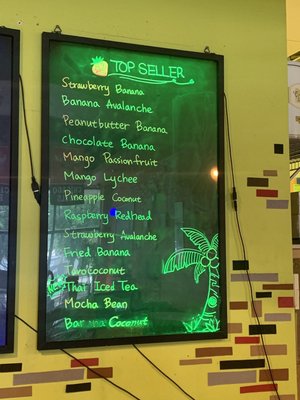 TOP SELLER
Strawberry Banana
Banana Avalanche
Peanutbutter Banana
Chocolate Banana
Mango Passionfruit
Mango Lychee
Pineapple Coconut
Raspberry Redhead
Strawberry Avalanche
Fried Banana
Taro Coconut
Thai Iced Tea
Mocha Bean
Banana Coconut